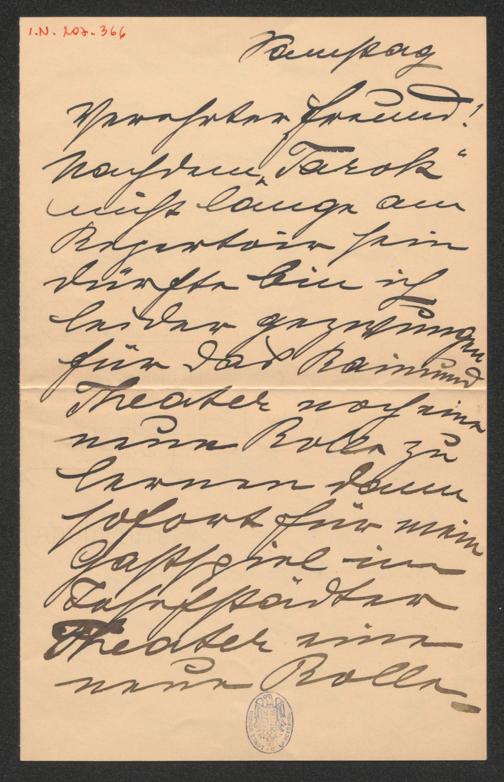 I.N. 207.366
Samstag
Verehrter Freund!
Nachdem „Tarok“
nicht länge am
Repertoir sein
dürfte bin ich
leider gezwungen
für das Raimund
Theater noch eine
neue Rolle zu
lernen dann
sofort für mein
Gastspiel im
Josefstädter
Theater eine
neue Rolle